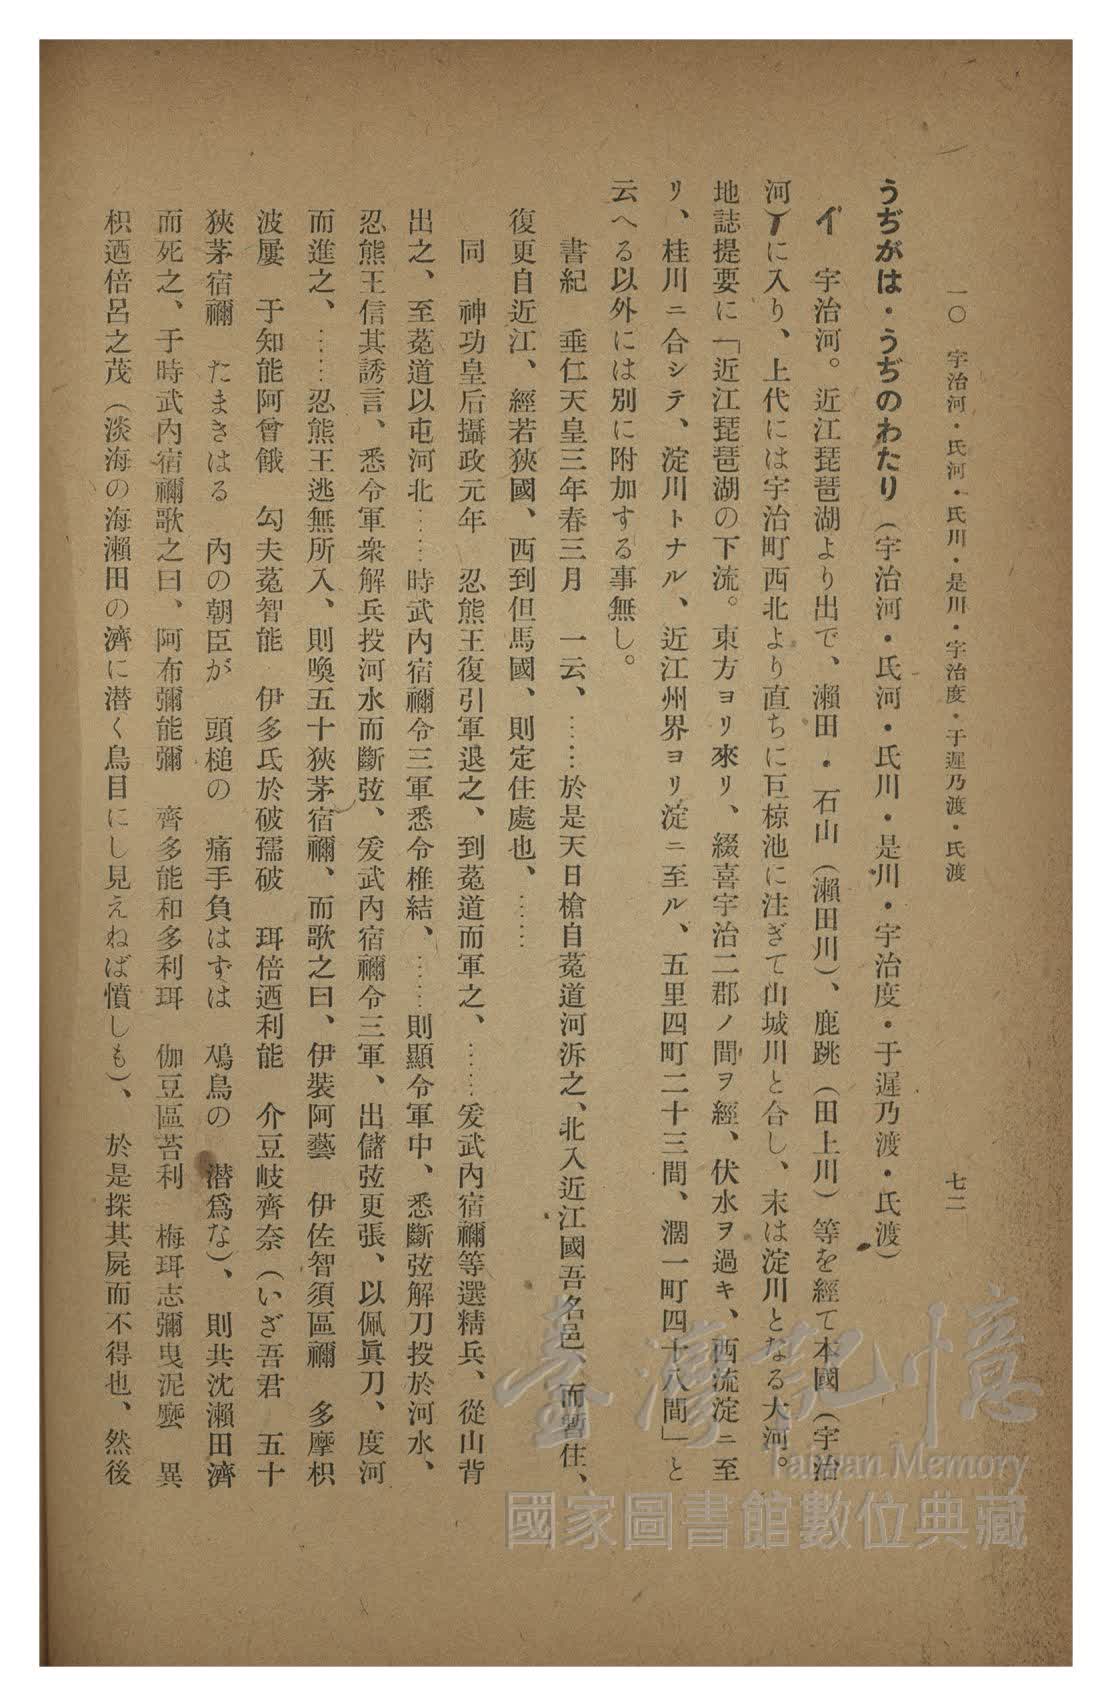 一〇　宇治河・氏河・氏川・是川・宇治度・于遲乃渡・氏渡　七二
うぢがは・うぢのわたり（宇治河・氏河・氏川・是川・宇治度・于遲乃渡・氏渡）
イ　宇治河。近江琵琶湖より出で、瀬田・石山（瀬田川）、鹿跳（田上川）等を經て本國（宇治
河）に入り、上代には宇治町西北より直ちに巨椋池に注ぎて山城川と合し、末は淀川となる大河。
地誌提要に「近江琵琶湖の下流。東方ヨリ來リ、綴喜宇治二郡ノ間ヲ經、伏水ヲ過キ、西流淀ニ至
リ、桂川ニ合シテ、淀川トナル、近江州界ヨリ淀ニ至ル、五里四町二十三間、濶一町四十八間」と
云へる以外には別に附加する事無し。
書紀　垂仁天皇三年春三月　一云、……於是天日槍自菟道河泝之、北入近江國吾名邑、而暫住、
復更自近江、經若狹國、西到但馬國、則定住處也、……
同　神功皇后攝政元年　忍熊王復引軍退之、到菟道而軍之、……爰武內宿禰等選精兵、從山背
出之、至菟道以屯河北……時武内宿禰令三軍悉令椎結、……則顯令軍中、悉斷弦解刀投於河水、
忍熊王信其誘言、悉令軍衆解兵投河水而斷弦、爰武內宿禰令三軍、出儲弦更張、以佩眞刀、度河
而進之、……忍熊王逃無所入、則喚五十狹茅宿禰、而歌之曰、伊裝阿藝　伊佐智須區禰　多摩枳
波屢　于知能阿曾餓　勾夫菟智能　伊多氐於破孺破　珥倍廼利能　介豆岐齊奈（いざ吾君　五十
狹茅宿禰　たまきはる　內の朝臣が　頭槌の　痛手負はずは　鳰鳥の　潜爲な）、則共沈瀨田濟
而死之、于時武內宿禰歌之曰、阿布彌能彌　齊多能和多利珥　伽豆區苔利　梅珥志彌曳泥麼　異
枳廼倍呂之茂（淡海の海瀨田の濟に潜く鳥目にし見えねば憤しも）、於是探其屍而不得也、然後
臺灣記憶
Taiwan Memory
國家圖書館數位典藏